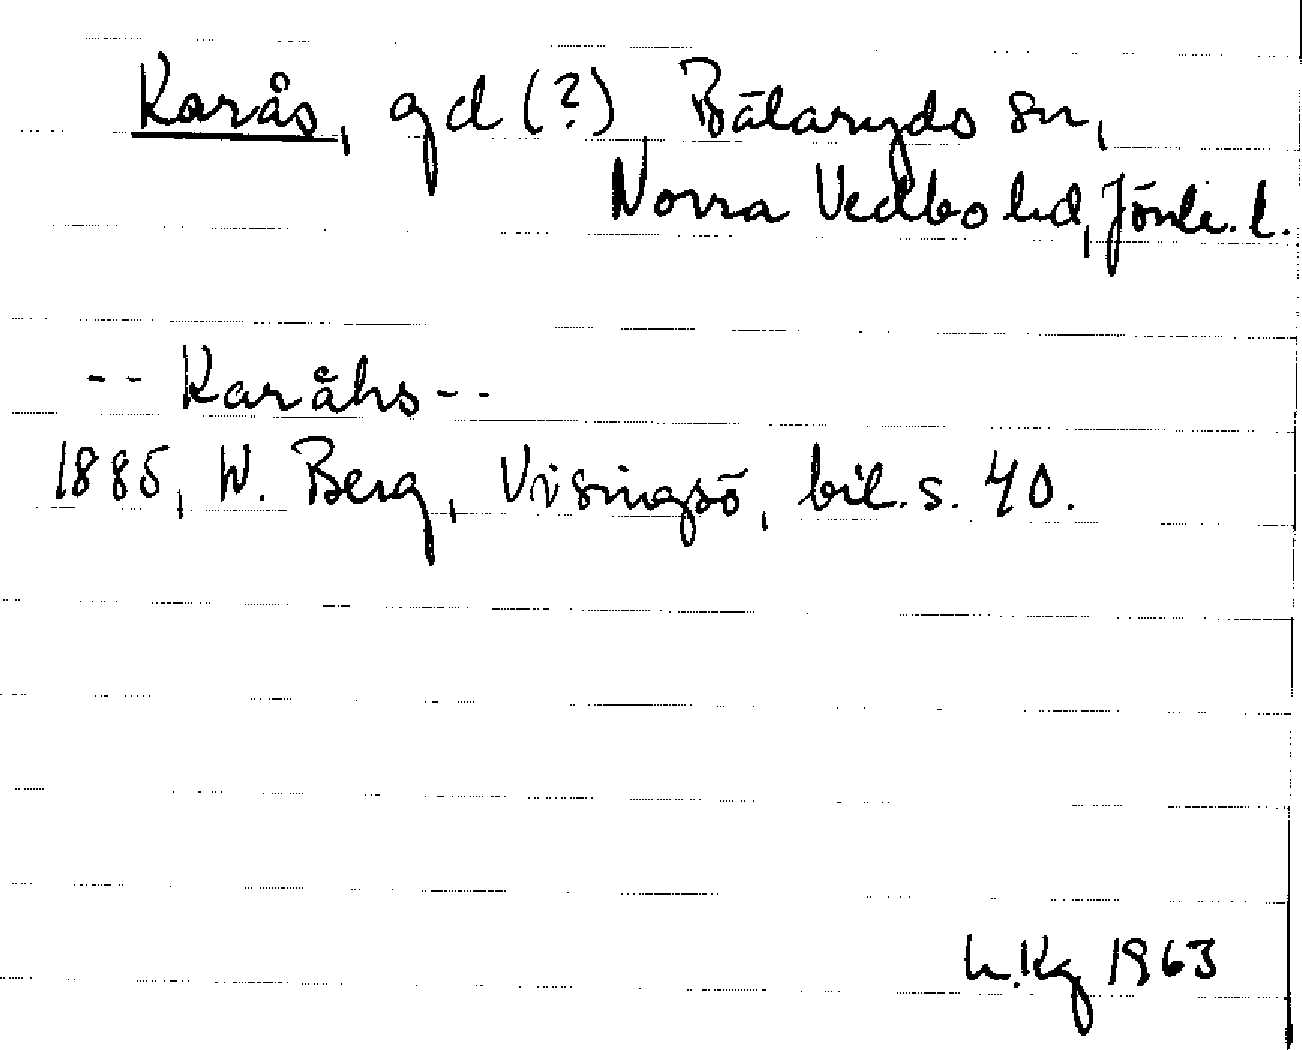 Karås, gd (?) Bälaryds sn,
Norra Vedbo hd, Jönk. l.
-- Karåhs --
1885, W. Berg, Visingsö, bil. s. 40.
L.Kg 1963